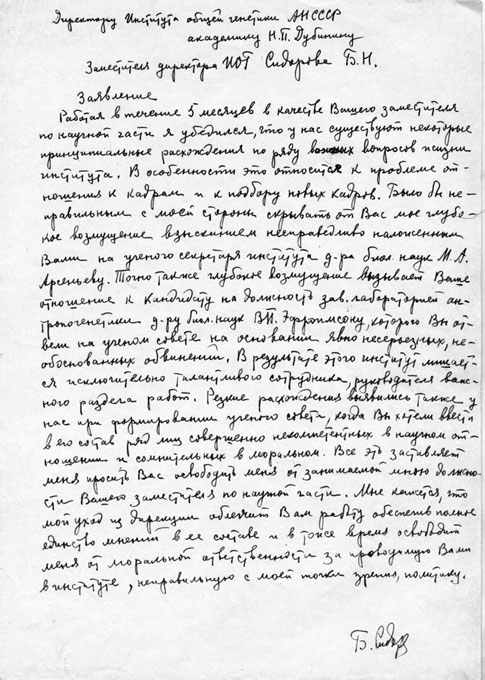 Директору Института общей генетики АНСССР
академику Н.П. Дубинину
Заместителя директора ИОГ Сидорова Б.Н.
Заявление
Работая в течение 5 месяцев в качестве Вашего заместителя
по научной части я убедился, что у нас существуют некоторые
принципиальные расхождения по ряду важных вопросов жизни
института. В особенности это относится к проблеме от-
ношения к кадрам и к подбору новых кадров. Было бы не-
правильным с моей стороны скрывать от Вас мое глубо-
кое возмущение взысканием несправедливо наложенным
Вами на ученого секретаря института д-ра биол. наук М.А.
Арсеньеву. Точно также глубокое возмущение вызывает Ваше
отношение к кандидату на должность зав. лабораторией ан-
тропогенетики д-ру биол. наук В.П. Эфроимсону, которого Вы от-
вели на ученом совете на основании явно несерьезных, не-
обоснованных обвинений. В результате этого институт лишает-
ся исключительно талантливого сотрудника, руководителя важ-
ного раздела работ. Резкие расхождения выявились также у
нас при формировании ученого совета, когда Вы хотели ввести
в его состав ряд лиц совершенно некомпетентных в научном от-
ношении и сомнительных в моральном. Все это заставляет
меня просить Вас освободить меня от занимаемой мною должно-
сти Вашего заместителя по научной части. Мне кажется, что
мой уход из дирекции облегчит Вам работу обеспечив полное
единство мнений в ее составе и в тоже время освободит
меня от моральной ответственности за проводимую Вами
в институте, неправильную с моей точки зрения, политику.
Б. Сидор